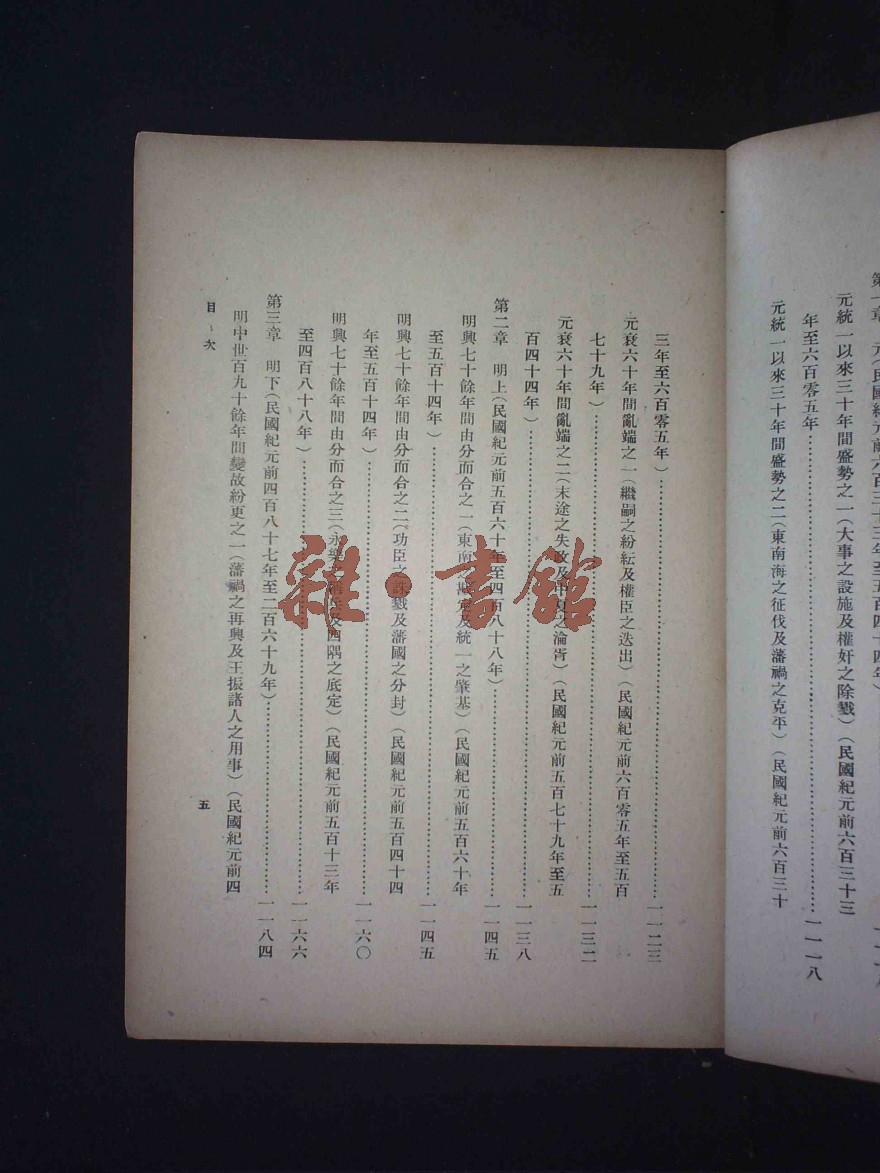 元統一以來三十年間盛勢之一(大事之設施及權奸之除戮)(民國紀元前六百三十三
年至六百零五年……一一一八
元統一以來三十年間盛勢之二(東南海之征伐及藩禍之克平)(民國紀元前六百三十
三年至六百零五年)……一一二三
元衰六十年間亂端之一(繼嗣之紛紜及權臣之迭出)(民國紀元前六百零五年至五百
七十九年)……一一三二
元衰六十年間亂端之二(末途之失政及中夏之淪胥)(民國紀元前五百七十九年至五
百四十四年)……一一三八
第二章 明上(民國紀元前五百六十年至四百八十八年)……一一四五
明興七十餘年間由分而合之一(東南之戡定及統一之肇基)(民國紀元前五百六十年
至五百十四年)……一一四五
明興七十餘年間由分而合之二(功臣之誅戮及藩國之分封)(民國紀元前五百四十四
年至五百十四年)……一一六〇
明興七十餘年間由分而合之三(永樂之及四隅之底定)(民國紀元前五百十三年
至四百八十八年)……一一六六
第三章 明下(民國紀元前四百八十七年至二百六十九年)……一一八四
明中世百九十餘年間變故紛更之一(藩禍之再興及王振諸人之用事)(民國紀元前四
目次
五
雜·書館